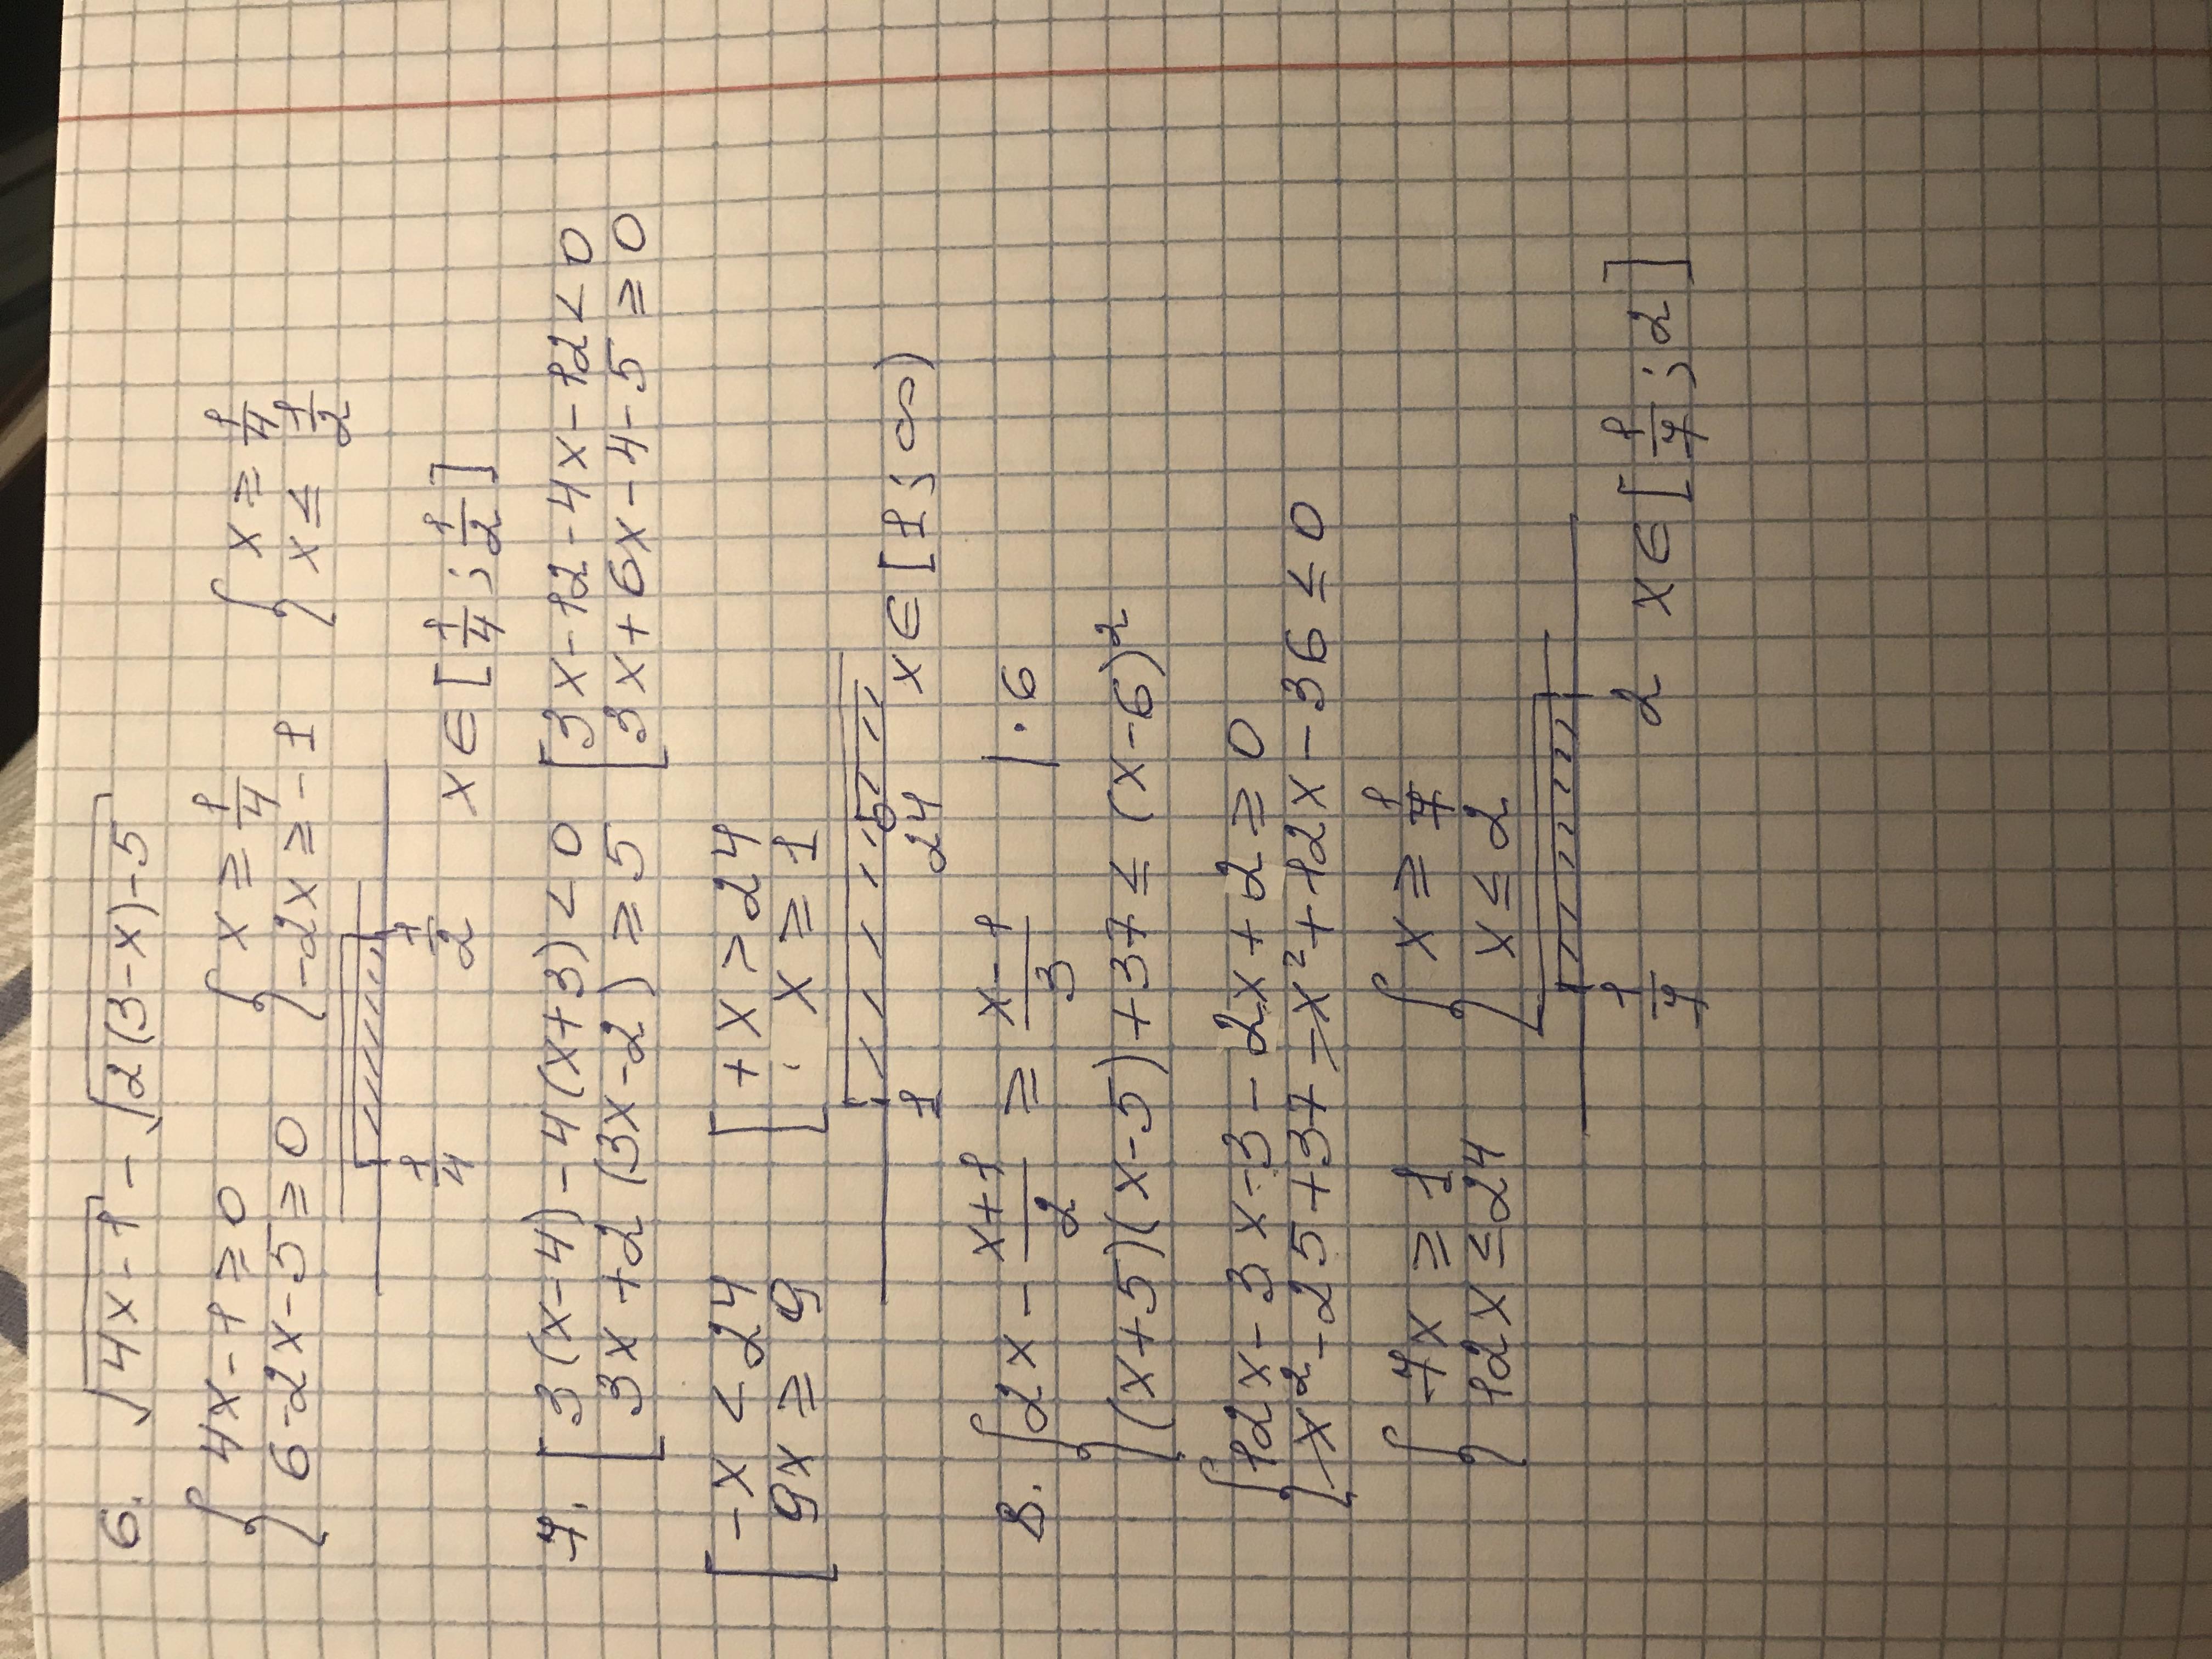 6. √(4x-1) - √(2(3-x)-5)
{ 4x-1 ≥ 0 { x ≥ 1/4 { x ≥ 1/4
6-2x-5 ≥ 0 -2x ≥ -1 x ≤ 1/2
1/4 1/2 x ∈ [1/4 ; 1/2]
7. [ 3(x-4)-4(x+3) < 0 [ 3x-12-4x-12 < 0
3x+2(3x-2) ≥ 5 3x+6x-4-5 ≥ 0
[ -x < 24 [ +x > 24
9x ≥ 9 x ≥ 1
1 24 x ∈ [1 ; ∞)
8. { 2x - (x+1)/2 ≥ (x-1)/3 | · 6
(x+5)(x-5)+37 ≤ (x-6)²
{ 12x-3x-3-2x+2 ≥ 0
x²-25+37-x²+12x-36 ≤ 0
{ 7x ≥ 1 { x ≥ 1/7
12x ≤ 24 x ≤ 2
1/7 2 x ∈ [1/7 ; 2]